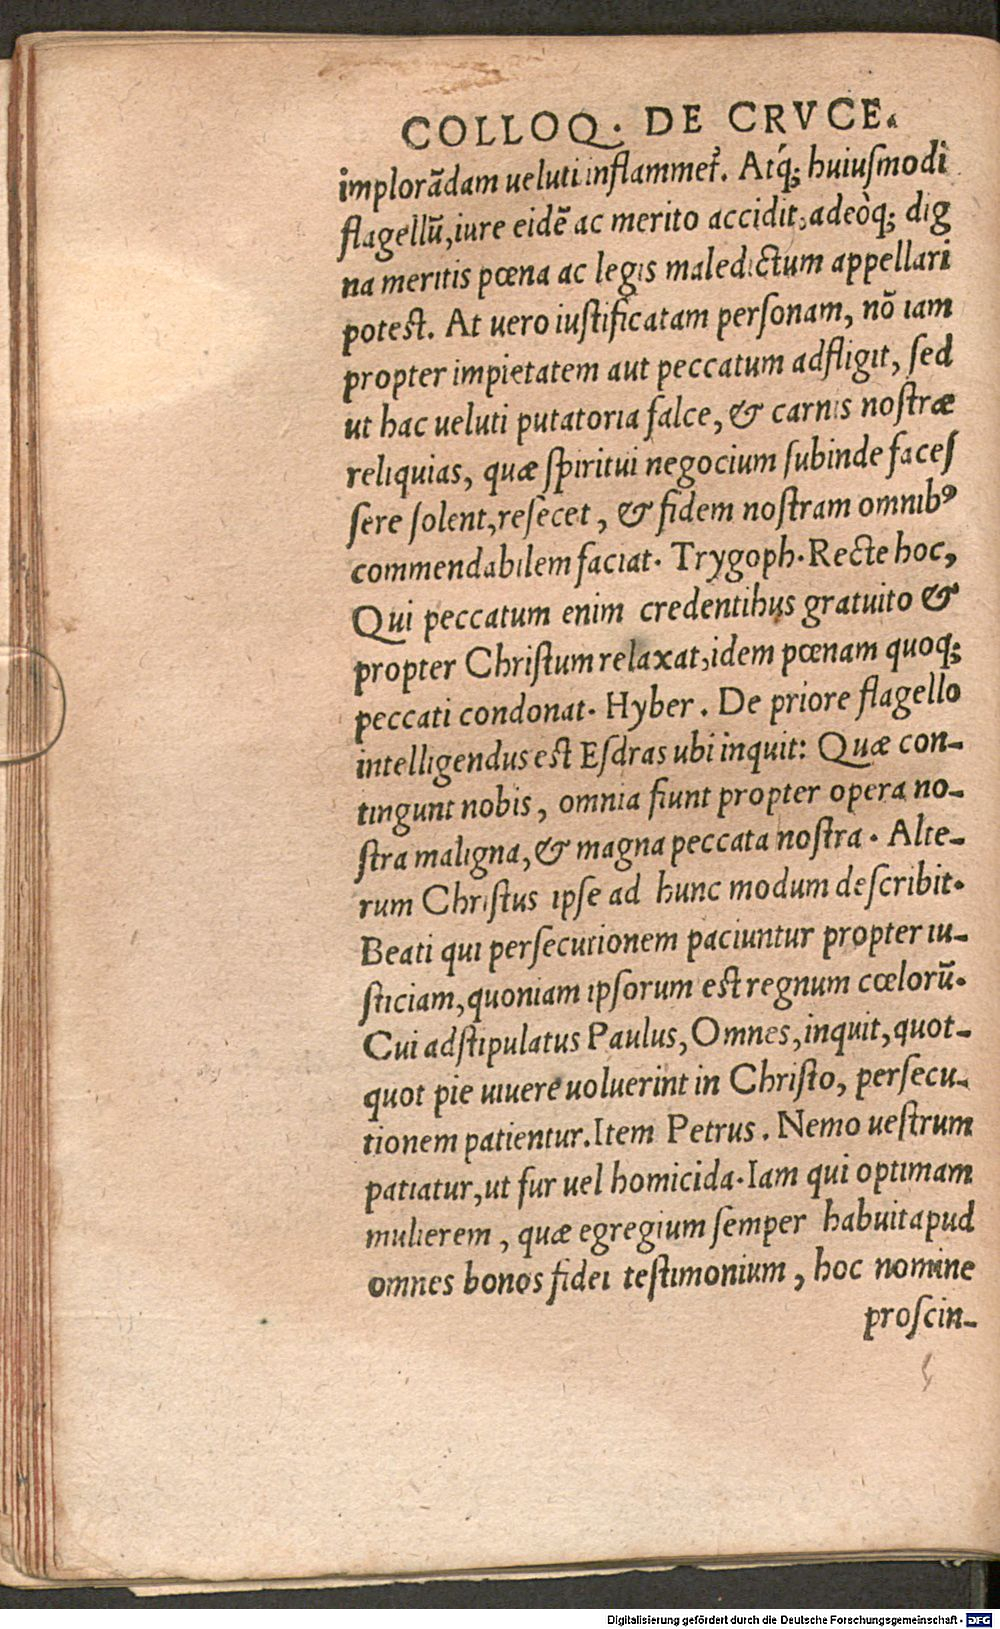 COLLOQ. DE CRVCE.
implorãdam ueluti inflammet̃. Atq́; huiuſmodi
flagellũ, iure eidẽ ac merito accidit, adeòq; dig
na meritis pœna ac legis maledictum appellari
poteſt. At uero iuſtificatam perſonam, nõ iam
propter impietatem aut peccatum adfligit, ſed
ut hac ueluti putatoria falce, & carnis noſtræ
reliquias, quæ ſpiritui negocium ſubinde faceſ
ſere ſolent, reſecet, & fidem noſtram omnibꝰ
commendabilem faciat. Trygoph. Recte hoc,
Qui peccatum enim credentibus gratuito &
propter Chriſtum relaxat, idem pœnam quoq;
peccati condonat. Hyber. De priore flagello
intelligendus eſt Eſdras ubi inquit: Quæ con-
tingunt nobis, omnia fiunt propter opera no-
ſtra maligna, & magna peccata noſtra. Alte-
rum Chriſtus ipſe ad hunc modum deſcribit.
Beati qui perſecutionem paciuntur propter iu-
ſticiam, quoniam ipſorum eſt regnum cœlorũ.
Cui adſtipulatus Paulus, Omnes, inquit, quot-
quot pie uiuere uoluerint in Chriſto, perſecu-
tionem patientur. Item Petrus. Nemo ueſtrum
patiatur, ut fur uel homicida. Iam qui optimam
mulierem, quæ egregium ſemper habuit apud
omnes bonos fidei teſtimonium, hoc nomine
proſcin-
Digitalisierung gefördert durch die Deutsche Forschungsgemeinschaft - DFG